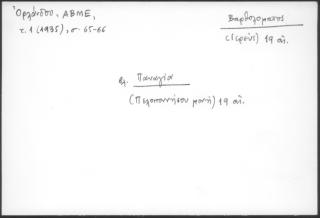 Ὀρλάνδου, ΑΒΜΕ,
τ. 1 (1935), σ. 65-66
Βαρθολομαιος
(ἱερεύς) 19 αἰ.
Βλ. Παναγία
(Πελοποννήσου μονή) 19 αἰ.